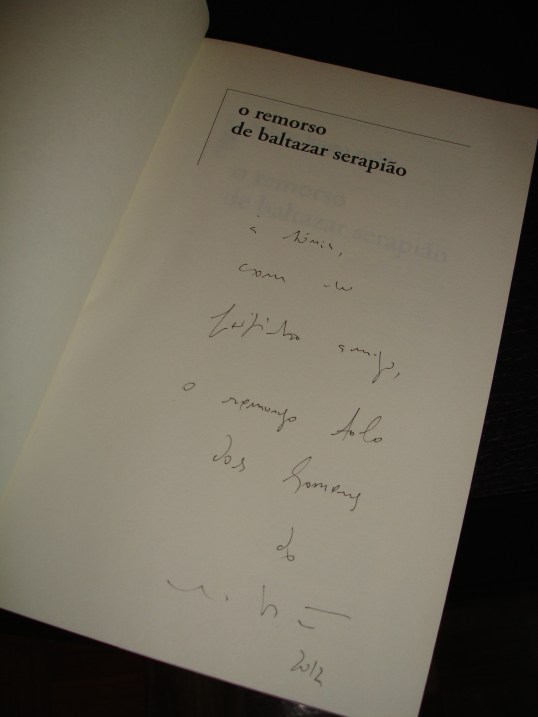 o remorso
de baltazar serapião
o remorso
de baltazar serapião
a sónia,
com um
beijinho amigo,
o remorso tolo
dos homens
do
2012